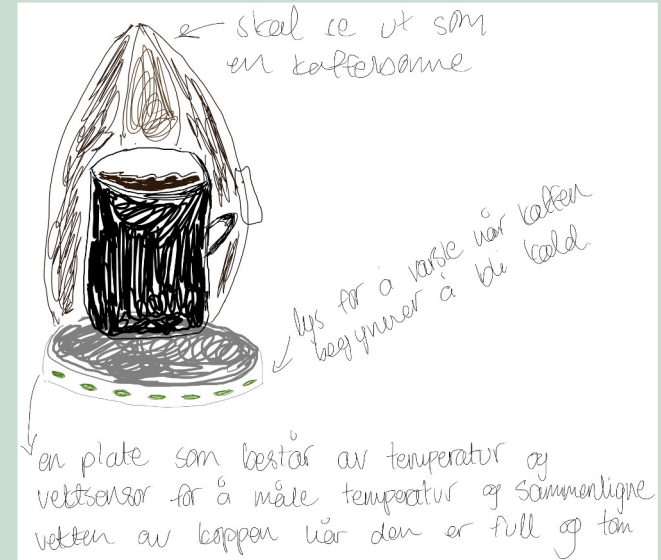 skal se ut som
en kaffebønne
lys for å varsle når kaffen
begynner å bli kald.
en plate som består av temperatur og
vektsensor for å måle temperatur og sammenligne
vekten av koppen når den er full og tom